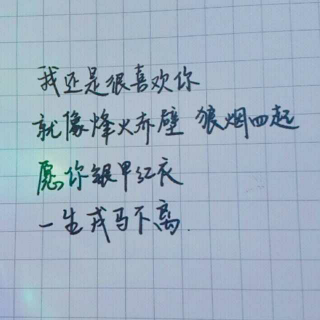 我还是很喜欢你
就像烽火赤壁 狼烟四起
愿你银甲红衣
一生戎马不离